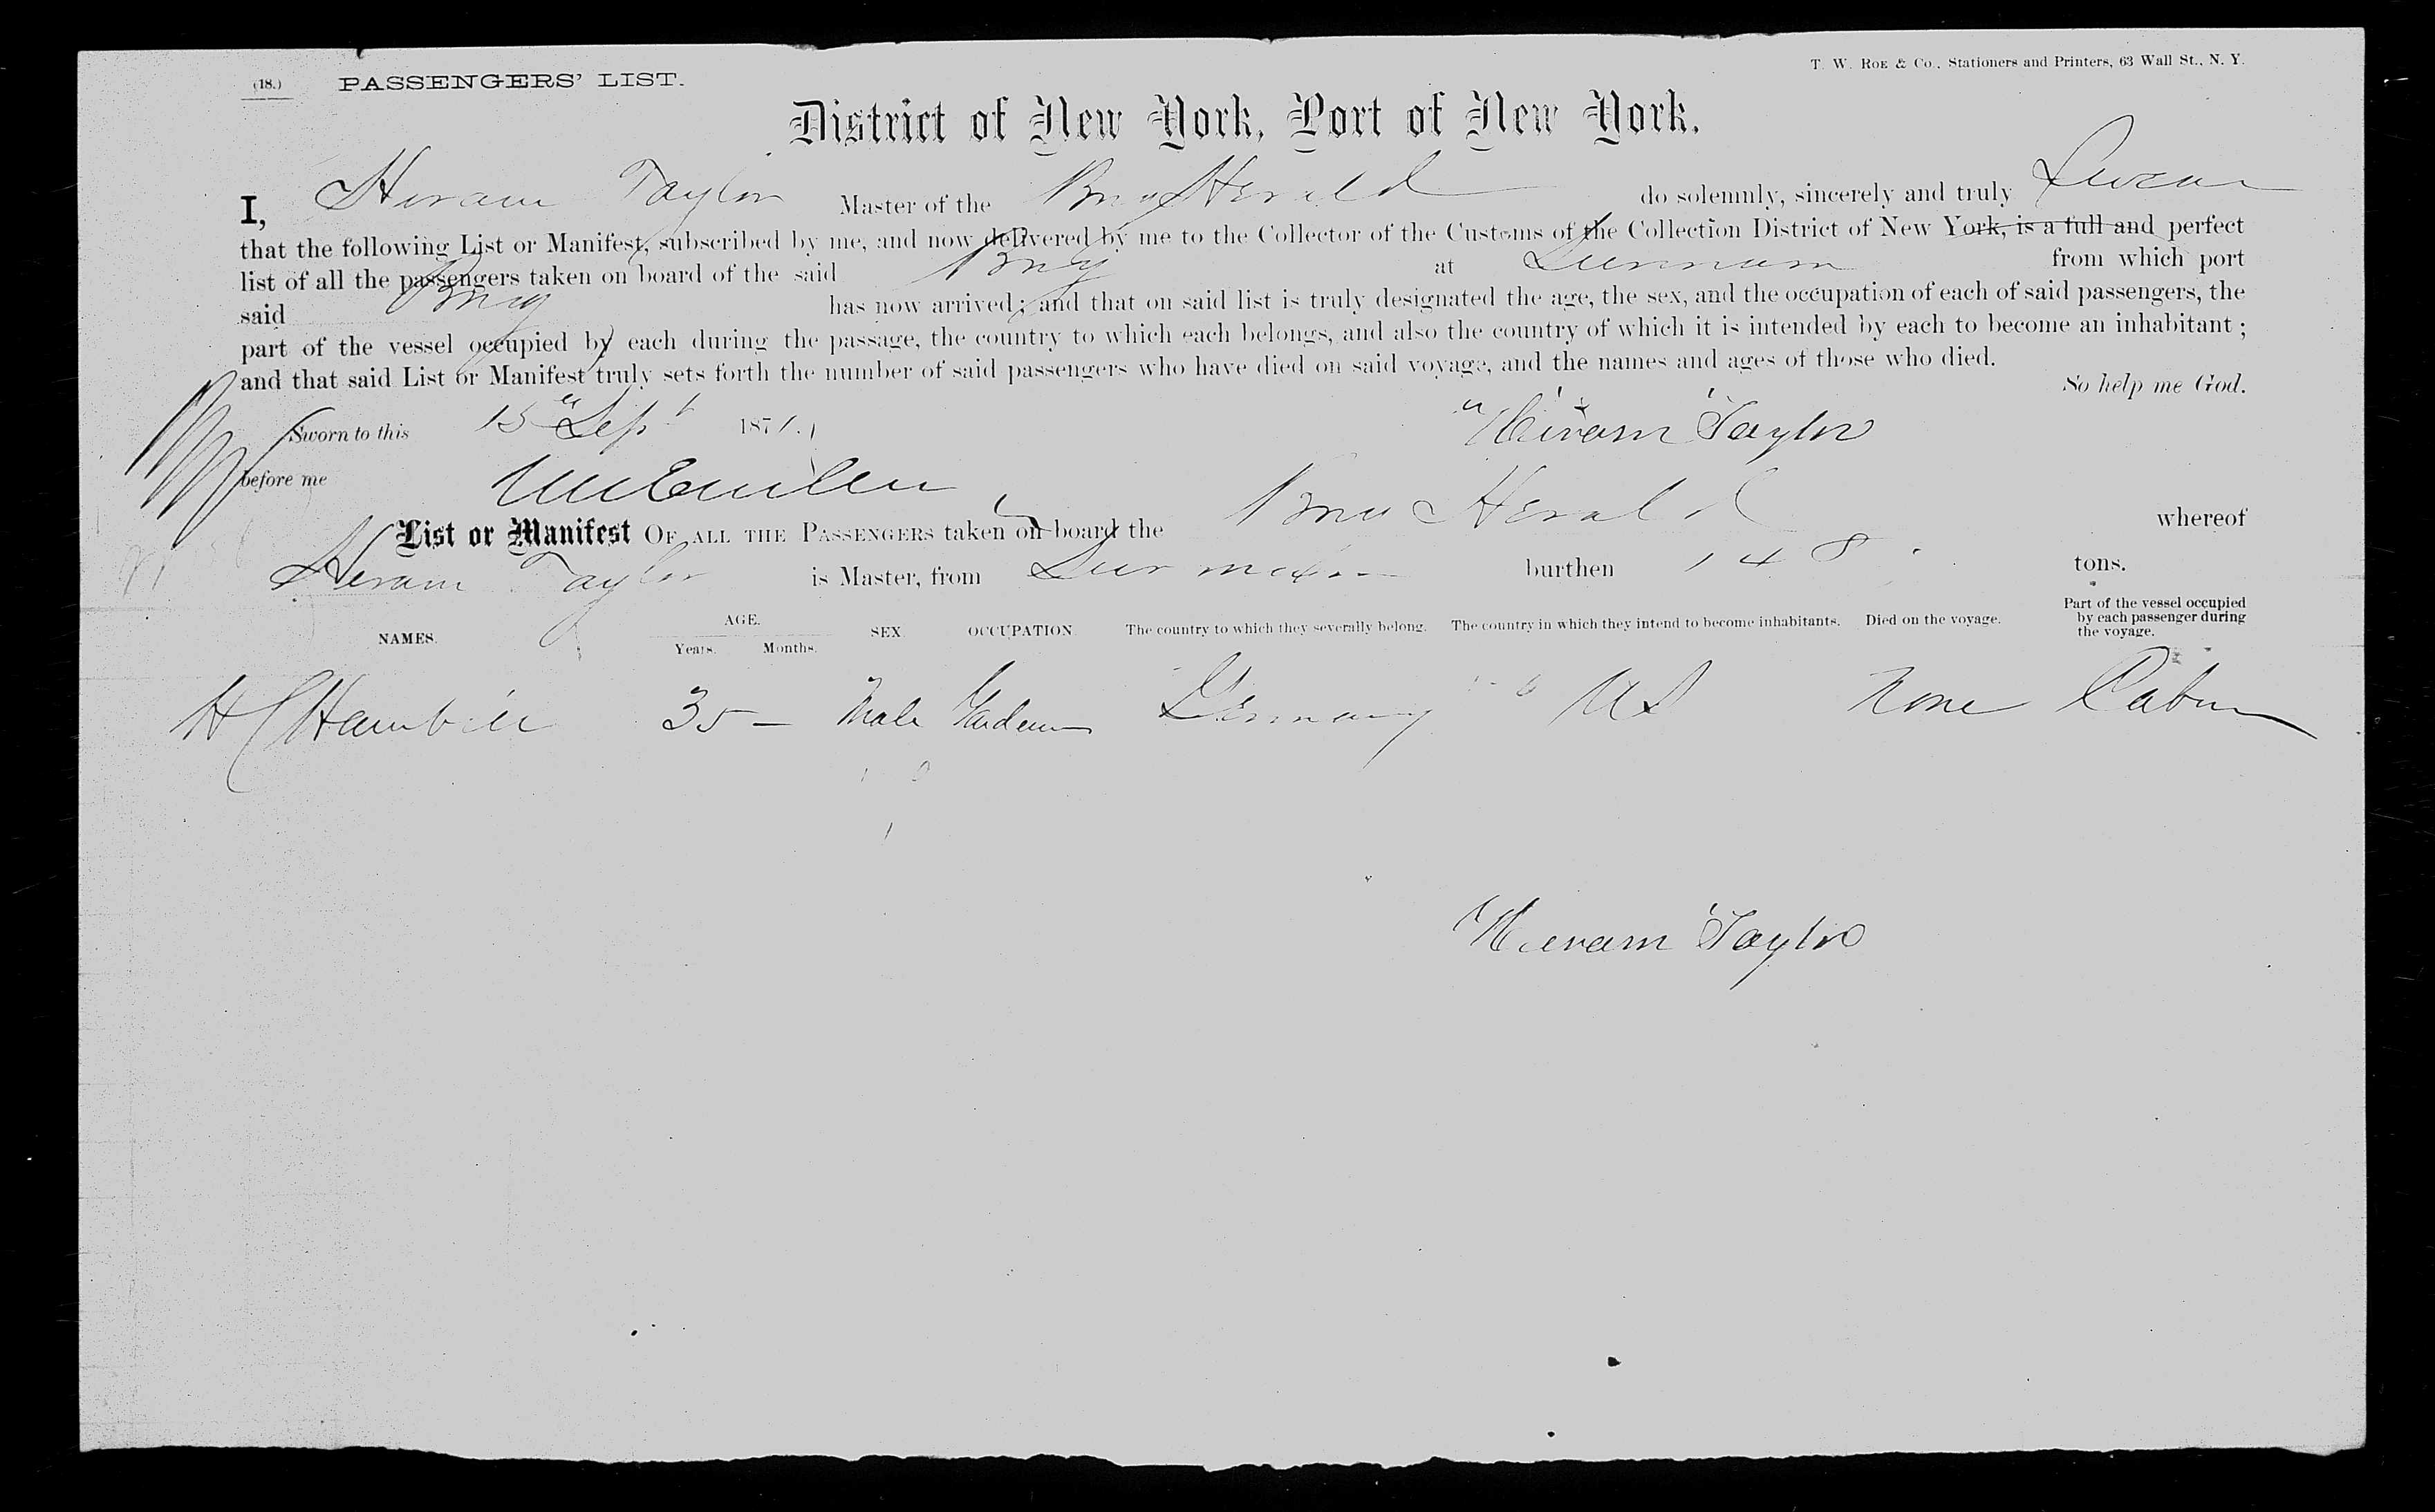 (18.) PASSENGERS' LIST.
T. W. ROE & Co., Stationers and Printers, 63 Wall St., N. Y.
District of New York, Port of New York.
I, Hiram Taylor Master of the Brig Herald do solemnly, sincerely and truly Swear
that the following List or Manifest, subscribed by me, and now delivered by me to the Collector of the Customs of the Collection District of New York, is a full and perfect
list of all the passengers taken on board of the said Brig at from which port
said Brig has now arrived; and that on said list is truly designated the age, the sex, and the occupation of each of said passengers, the
part of the vessel occupied by each during the passage, the country to which each belongs, and also the country of which it is intended by each to become an inhabitant;
and that said List or Manifest truly sets forth the number of said passengers who have died on said voyage, and the names and ages of those who died.
So help me God.
Sworn to this 15 Sept 1871. Hiram Taylor
before me
List or Manifest OF ALL THE PASSENGERS taken on board the Brig Herald whereof
Hiram Taylor is Master, from burthen 148 tons.
NAMES. AGE. Years. Months. SEX. OCCUPATION The country to which they severally belong. The country in which they intend to become inhabitants. Died on the voyage. Part of the vessel occupied by each passenger during the voyage.
H C 35 – Male Germany US None Cabin
Hiram Taylor